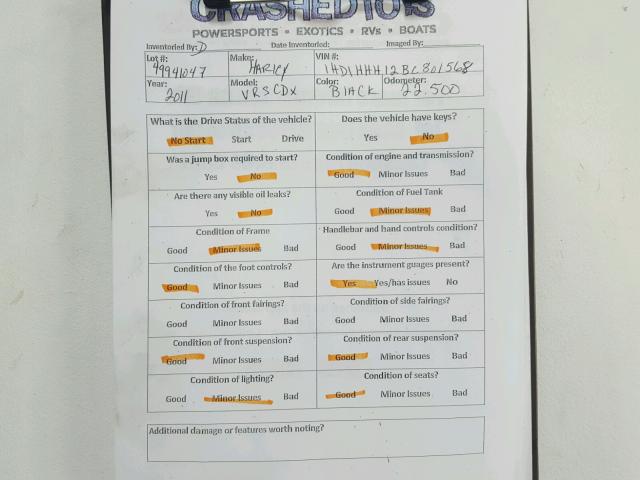 CRASHEDTOYS
POWERSPORTS • EXOTICS • RVs • BOATS
Inventoried By: D Date Inventoried: Imaged By:
Lot #: Make: VIN #:
49941047 HARlEY 1HD1HHH12BC801568
Year: Model: Color: Odometer:
2011 VRSCDX BlACK 22.500
What is the Drive Status of the vehicle? Does the vehicle have keys?
No Start Start Drive Yes No
Was a jump box required to start? Condition of engine and transmission?
Yes No Good Minor Issues Bad
Are there any visible oil leaks? Condition of Fuel Tank
Yes No Good Minor Issues Bad
Condition of Frame Handlebar and hand controls condition?
Good Minor Issues Bad Good Minor Issues Bad
Condition of the foot controls? Are the instrument guages present?
Good Minor Issues Bad Yes Yes/has issues No
Condition of front fairings? Condition of side fairings?
Good Minor Issues Bad Good Minor Issues Bad
Condition of front suspension? Condition of rear suspension?
Good Minor Issues Bad Good Minor Issues Bad
Condition of lighting? Condition of seats?
Good Minor Issues Bad Good Minor Issues Bad
Additional damage or features worth noting?